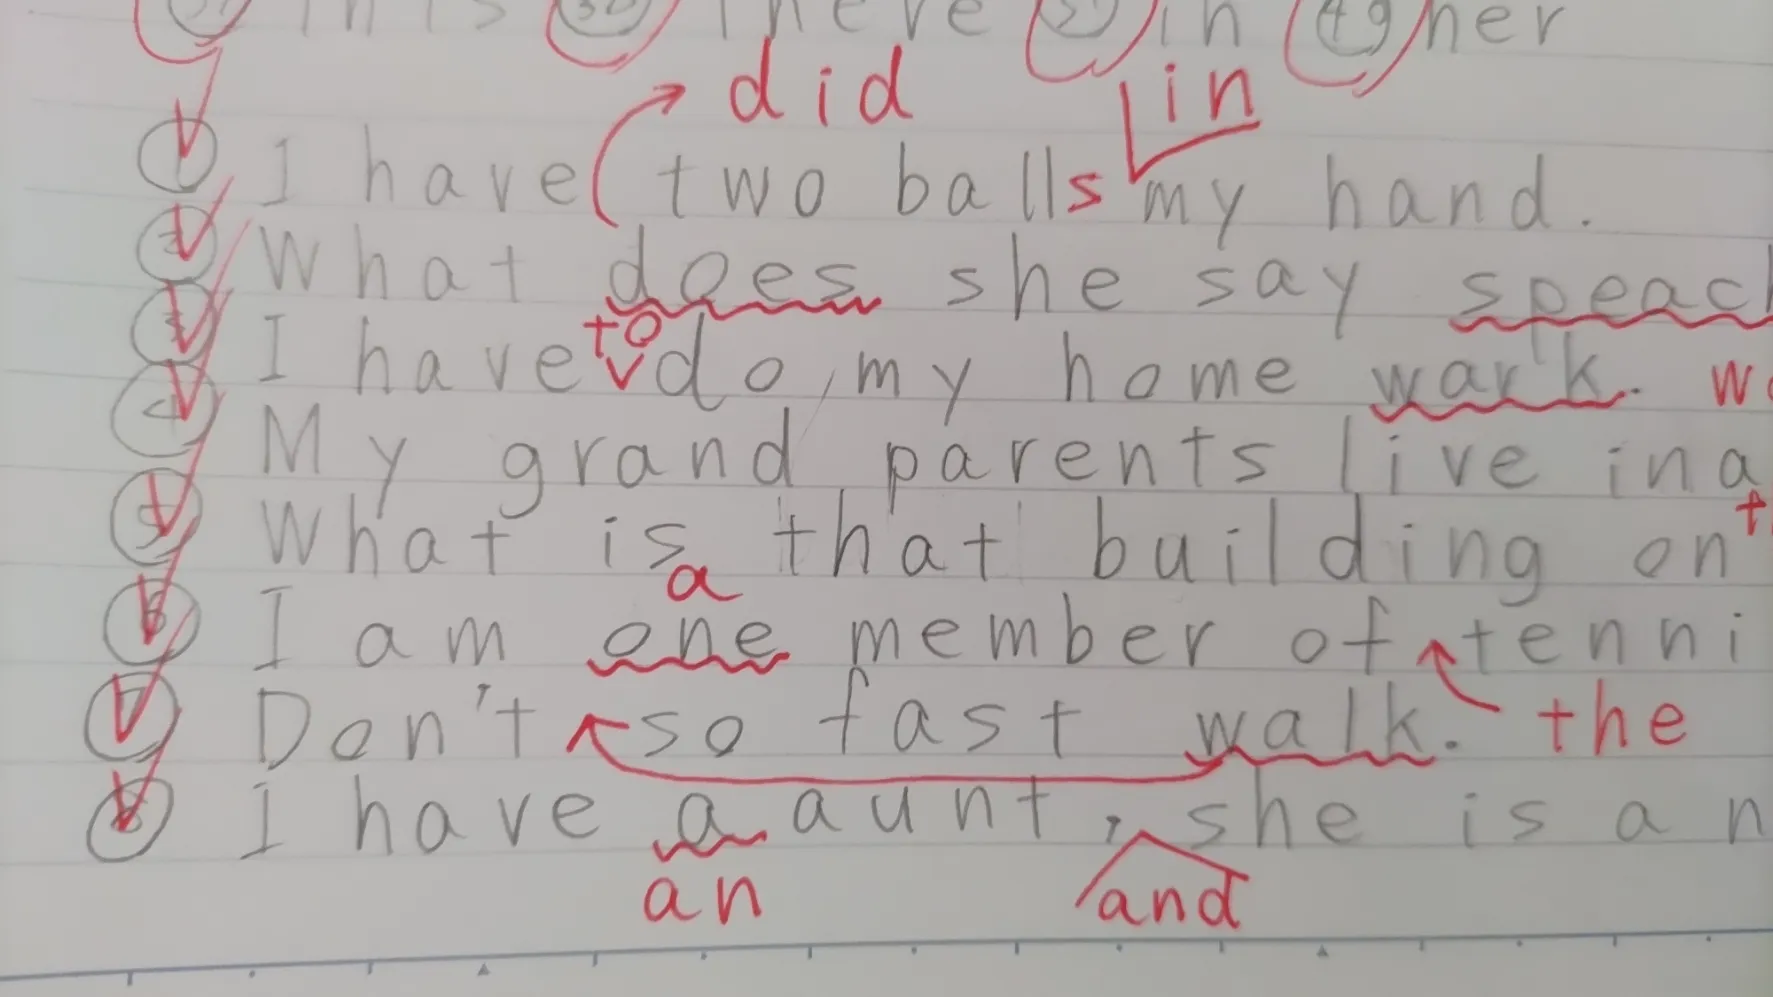 This There in her
did in
① I have two balls my hand.
② What does she say speach
to
③ I have do, my home wark.
④ My grand parents live in a
⑤ What is that building on
a
⑥ I am one member of tenni
⑦ Don't so fast walk. the
⑧ I have a aunt, she is a n
an and